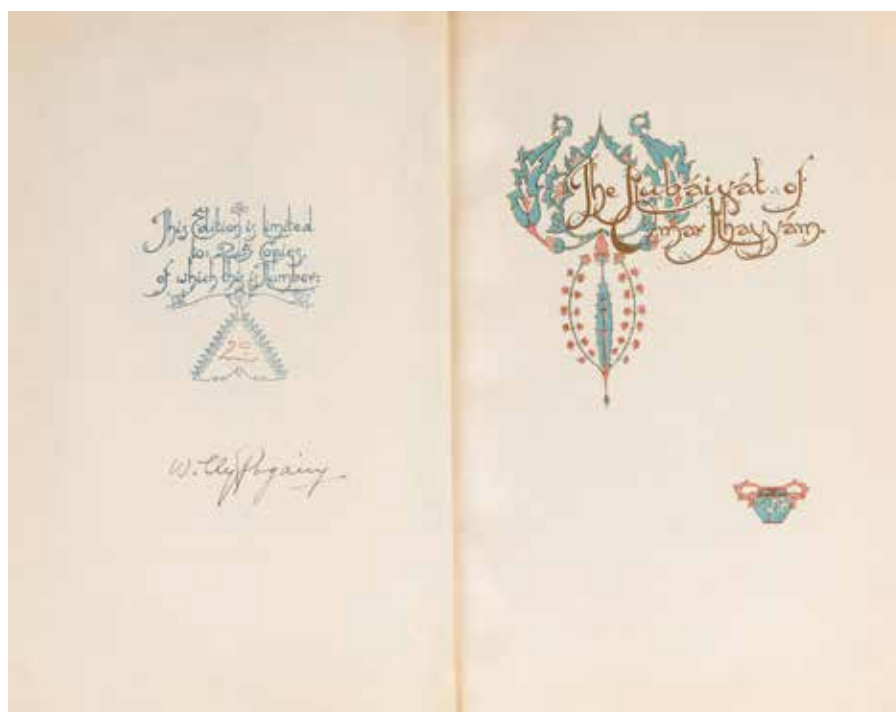 This Edition is limited
to: 25 Copies,
of which this is Number:
Willy Pogány
The Rubáiyát of
Omar Khayyám.